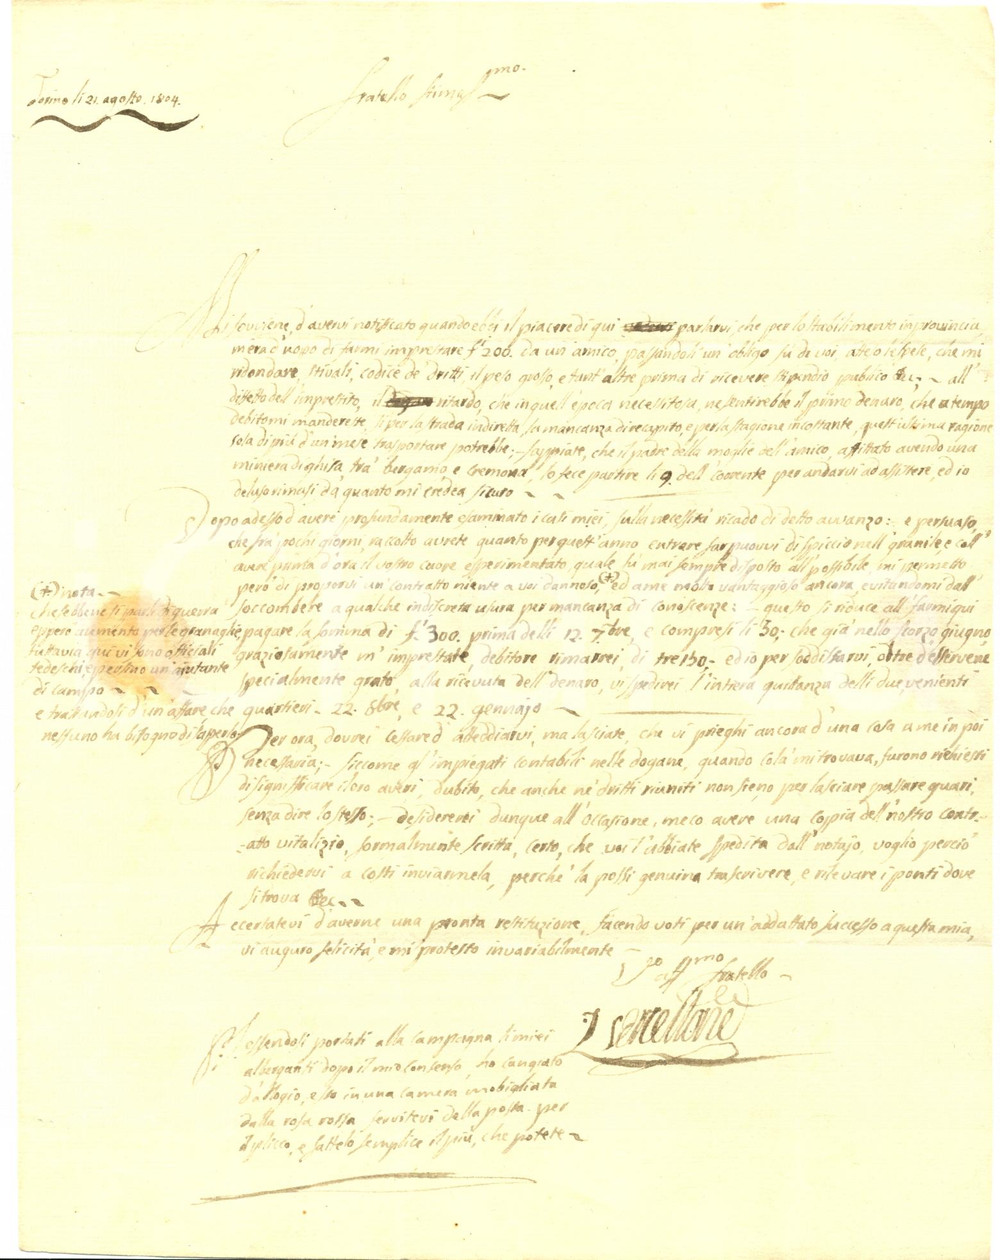 Torino li 21. agosto. 1804.
Fratello Stimmo.
Mi sovviene, d'avervi notificato quando ebbi il piacere di qui parlarvi che per lo stabilimento in provincia
m'era d'uopo di farmi imprestare f. 200. da un amico, passandoli un obligo su da voi, atteso le spese, che mi
ridondare, stivali, codice de' dritti, il peso groso, e tant'altre prima di ricevere stipendio publico &c; ~ all'
diffetto dell'imprestito, il ritardo, che in quell'epoca necessitosa, ne sentirebbe il primo denaro, che a tempo
debito mi manderette, sì per la strada indiretta la mancanza di recapito, e per la stagione incostante, quest'ultima ragione
sola di più d'un mese trasportare potrebbe; - sappiate, che il padre della moglie dell'amico, affittato avendo una
miniera di ghisa tra' bergamo, e Cremona, lo fece partire li 9. dell'Corrente per andarvi ad assistere, ed io
deluso rimasi da quanto mi credea sicuro ~ ~
Dopo adesso d'avere profundamente esaminato i casi miei, sulla necessità ricado di detto avvanzo: - e persuaso,
che fra' pochi giorni, raccolto avrete quanto per quest'anno entrare far puovvi di spiccio nell'granile, e coll'
avere prima d'ora il vostro cuore esperimentato quale fu mai sempre disposto all'possibile mi permetto
però di proporvi un contratto niente a voi dannoso, (+) ed a me molto vantaggioso ancora, evitandomi dall'
soccombere a qualche indiscreta usura per mancanza di conoscenze: - questo si riduce all'farmi qui
pagare la somma di f. 300. prima delli 12. 7.bre, e compresi li 30,- che già nello scorso giugno,
graziosamente m'imprestaste, debitore rimarrei, di tre 130,- ed io per soddisfarvi, oltre d'esservene
specialmente grato, alla ricevuta dell'denaro, vi spedirei l'intiera quitanza delli due venienti
quartieri - 22. 8bre, e 22. gennajo ~
(+) nota ~
che sebbene si parli di guerra
eppero aumento per le granaglie
tuttavia qui vi sono officiali
tedeschi, e persino un'ajutante
di campo ~ ~
e trattandosi d'un'affare, che
nessuno ha bisogno di saperlo
Per ora, dovrei cessare d'attediarvi, ma lasciate, che vi prieghi ancora d'una cosa a me in poi
necessaria; - siccome gl'impregati contabili nelle dogane, quando colà mi trovava, furono richiesti
di significare i loro averi, dubito, che anche ne' dritti riuniti non sieno per lasciare passare guari,
senza dire lo stesso; - desidererei dunque all'occasione, meco avere una coppia dell'nostro contr-
-atto vitalizio, formalmente scritta, certo, che voi l'abbiate spedita dall'notajo, voglio perciò
richiedervi a costì inviarmela, perchè la possi genuina trascrivere, e rilevare i ponti dove
si trova &c. ~
Accertatevi d'averne una pronta restituzione, facendo voti per un'addattato successo a questa mia,
vi auguro felicità, e mi protesto invariabilmente -
affmo fratello ~
Vercellone
P.S. essendosi portati alla Campagna li miei
alberganti dopo il mio consenso, ho cangiato
d'allogio, e sto in una camera mobigliata
dalla rosa rossa servitevi della posta per
il plicco, e fattelo semplice il più, che potete ~